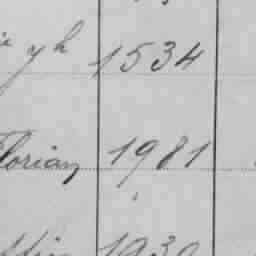 yh 1534
Florian 1981
1930